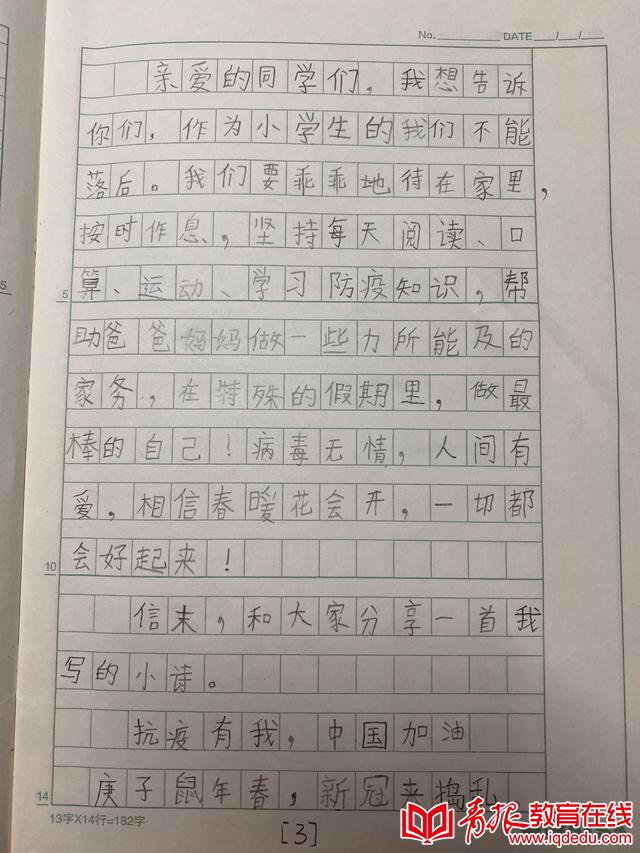 No. DATE / /
亲爱的同学们，我想告诉
你们，作为小学生的我们不能
落后。我们要乖乖地待在家里，
按时作息，坚持每天阅读、口
算、运动、学习防疫知识，帮
助爸爸妈妈做一些力所能及的
家务，在特殊的假期里，做最
棒的自己！病毒无情，人间有
爱，相信春暖花会开，一切都
会好起来！
信末，和大家分享一首我
写的小诗。
抗疫有我，中国加油
庚子鼠年春，新冠来捣乱
5
5
10
14
13字X14行=182字
[3]
青报教育在线
www.iqdedu.com